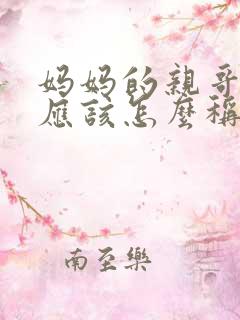 妈妈的親哥
應該怎麼稱
南至樂